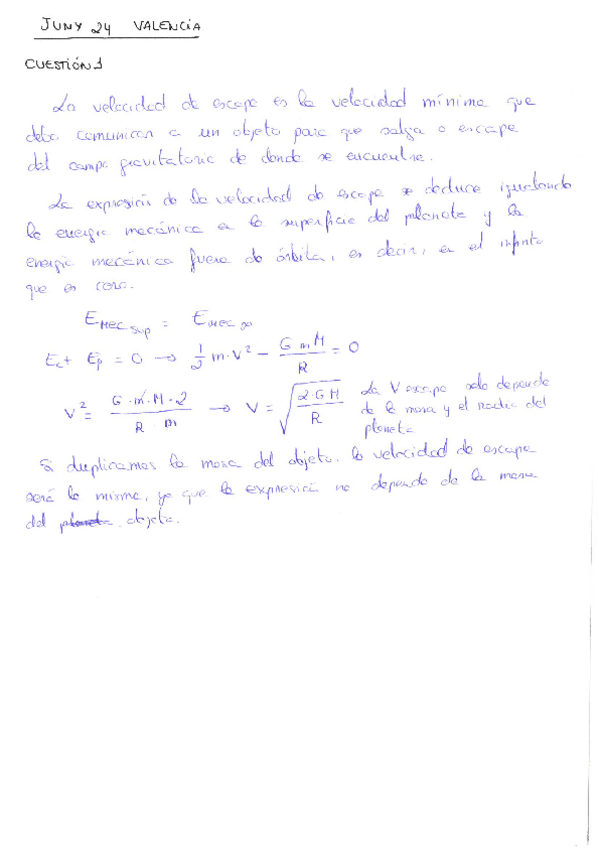 JUNY 24 VALENCIA
CUESTIÓN 1
La velocidad de escape es la velocidad mínima que
debo comunicar a un objeto para que salga o escape
del campo gravitatorio de donde se encuentre.
La expresión de la velocidad de escape se deduce igualando
la energía mecánica en la superficie del planeta y la
energía mecánica fuera de órbita, es decir, en el infinito
que es cero.
E_MEC sup = E_MEC ∞
Ec + Ep = 0 → 1/2 m · v² - G m M / R = 0
V² = G · m · M · 2 / R m → V = √(2 · G M / R) La V escape solo depende
de la masa y el radio del
planeta
Si duplicamos la masa del objeto. la velocidad de escape
será la misma, ya que la expresión no depende de la masa
del planeta objeto.